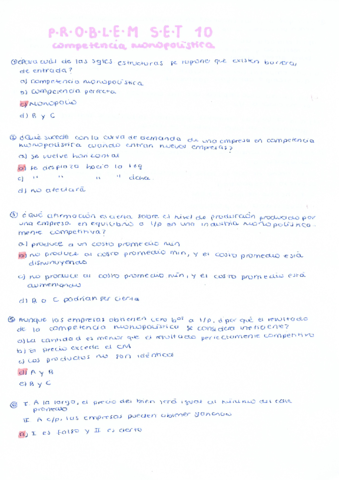 PROBLEM SET 10
competencia monopolística
① ¿Para cuál de las sgtes estructuras se supone que existen barreras de entrada?
a) competencia monopolística
b) competencia perfecta
c) Monopolio
d) B y C
② ¿Qué sucede con la curva de demanda de una empresa en competencia
monopolística cuando entran nuevas empresas?
a) se vuelve horizontal
b) se desplaza hacia la izq
c) " " " " dcha
d) no afectará
③ ¿Qué afirmación es cierta sobre el nivel de producción producido por
una empresa en equilibrio a l/p en una industria monopolística-
mente competitiva?
a) produce a un costo promedio min
b) no produce al costo promedio min, y el costo promedio está
disminuyendo
c) no produce al costo promedio min, y el costo promedio está
aumentando
d) B o C podrían ser cierta
⑤ Aunque las empresas obtienen cero bos a l/p, ¿por qué el resultado
de la competencia monopolística se considera ineficiente?
a) La cantidad es menor que el resultado perfectamente competitivo
b) El precio excede el CM
c) Los productos no son idénticos
d) A y B
e) B y C
I. A la larga, el precio del bien será igual al mínimo del costo
promedio
II. A c/p, las empresas pueden obtener beneficio
I es falso y II es cierto